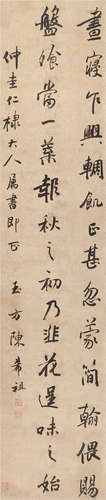 晝寢乍興輖飢正甚忽蒙簡翰猥賜
盤飧當一葉報秋之初乃韭花逞味之始
仲圭仁棣大人属書即正 玉方陳希祖